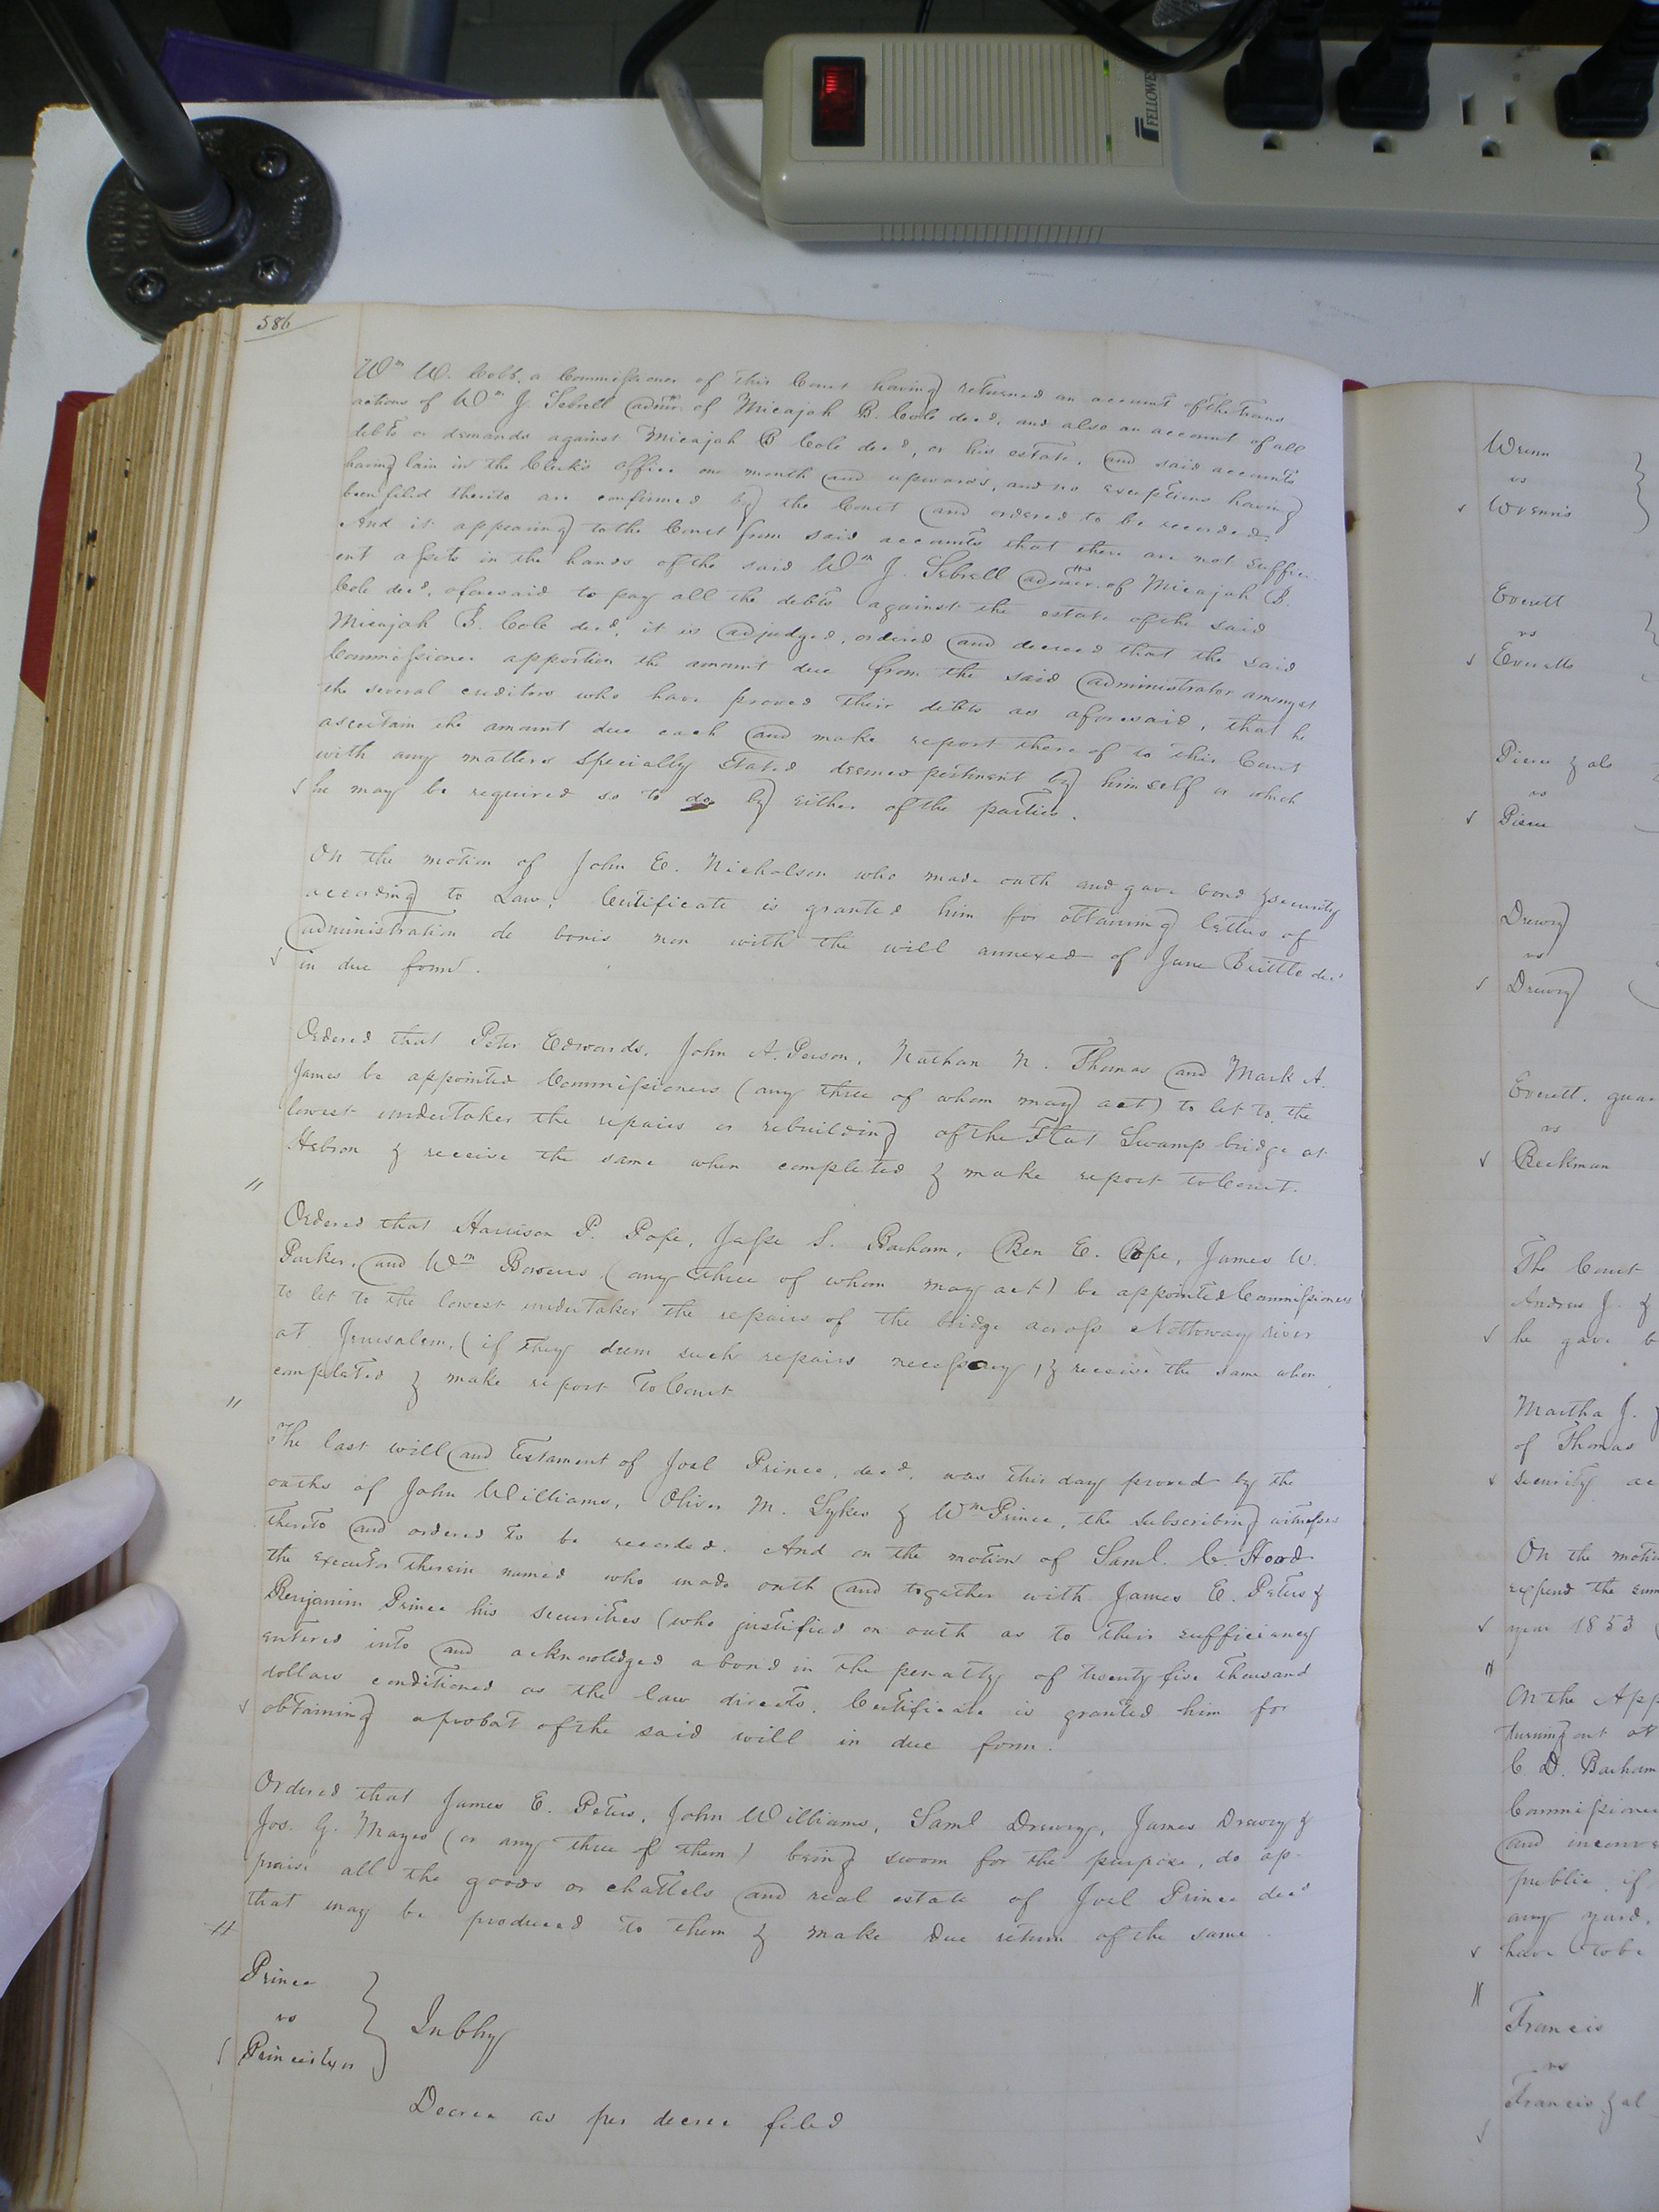 FELLOWES
586
Wm W. Cobb, a Commissioner of this Court having returned an account of the trans
actions of Wm J. Sebrell admr. of Micajah B. Cole decd, and also an account of all
debts or demands against Micajah B Cole decd, or his estate, and said accounts
having lain in the Clerk's office one month and upwards, and no exceptions having
been filed thereto are confirmed by the Court and ordered to be recorded.
And it appearing to the Court from said accounts that there are not suffici-
ent assets in the hands of the said Wm J. Sebrell admr. of Micajah B.
Cole decd, aforesaid to pay all the debts against the estate of the said
Micajah B. Cole decd, it is adjudged, ordered and decreed that the said
Commissioner apportion the amount due from the said administrator amongst
the several creditors who have proved their debts as aforesaid, that he
ascertain the amount due each and make report there of to this Court
with any matters specially stated deemed pertinent by himself or which
he may be required so to do by either of the parties.
On the motion of John E. Nicholson who made oath and gave bond & security
according to Law, Certificate is granted him for obtaining letters of
administration de bonis non with the will annexed of Jane Brittle decd
in due form.
Ordered that Peter Edwards, John A. Person, Nathan N. Thomas and Mark A.
James be appointed Commissioners (any three of whom may act) to let to the
lowest undertaker the repairs or rebuilding of the Flat Swamp bridge at
Hebron & receive the same when completed & make report to Court.
Ordered that Harrison P. Pope, Jesse S. Barham, Ben E. Pope, James W.
Parker, and Wm Bowers, (any three of whom may act) be appointed Commissioners
to let to the lowest undertaker the repairs of the bridge across Nottoway river
at Jerusalem, (if they deem such repairs necessary,) & receive the same when
completed & make report to Court
The last will and testament of Joel Prince, decd, was this day proved by the
oaths of John Williams, Oliver M. Sykes & Wm Prince, the subscribing witnesses
thereto and ordered to be recorded. And on the motion of Saml. C. Hood
the executor therein named who made oath and together with James E. Peters &
Benjamin Prince his securities (who justified on oath as to their sufficiency
entered into and acknowledged a bond in the penalty of twenty five thousand
dollars conditioned as the law directs. Certificate is granted him for
obtaining a probat of the said will in due form.
Ordered that James E. Peters, John Williams, Saml Drewry, James Drewry &
Jos. G. Mayes (or any three of them) being sworn for the purpose, do ap-
praise all the goods or chattels and real estate of Joel Prince decd
that may be produced to them & make due return of the same
Prince
vs
Princes Exor
In Chy
Decree as per decree filed
Wrenn
vs
Wrenns
Everett
vs
Everetts
Pierce & als
vs
Pierce
Drewry
vs
Drewry
Everett, guar
vs
Beckman
The Court
Andrew J. &
he gave b
Martha J.
of Thomas
security ac
On the motio
expend the sum
year 1853
On the App
turning out of
C. D. Barham
Commissioner
and inconve
public, if
any yard,
have to be
Francis
vs
Francis & al